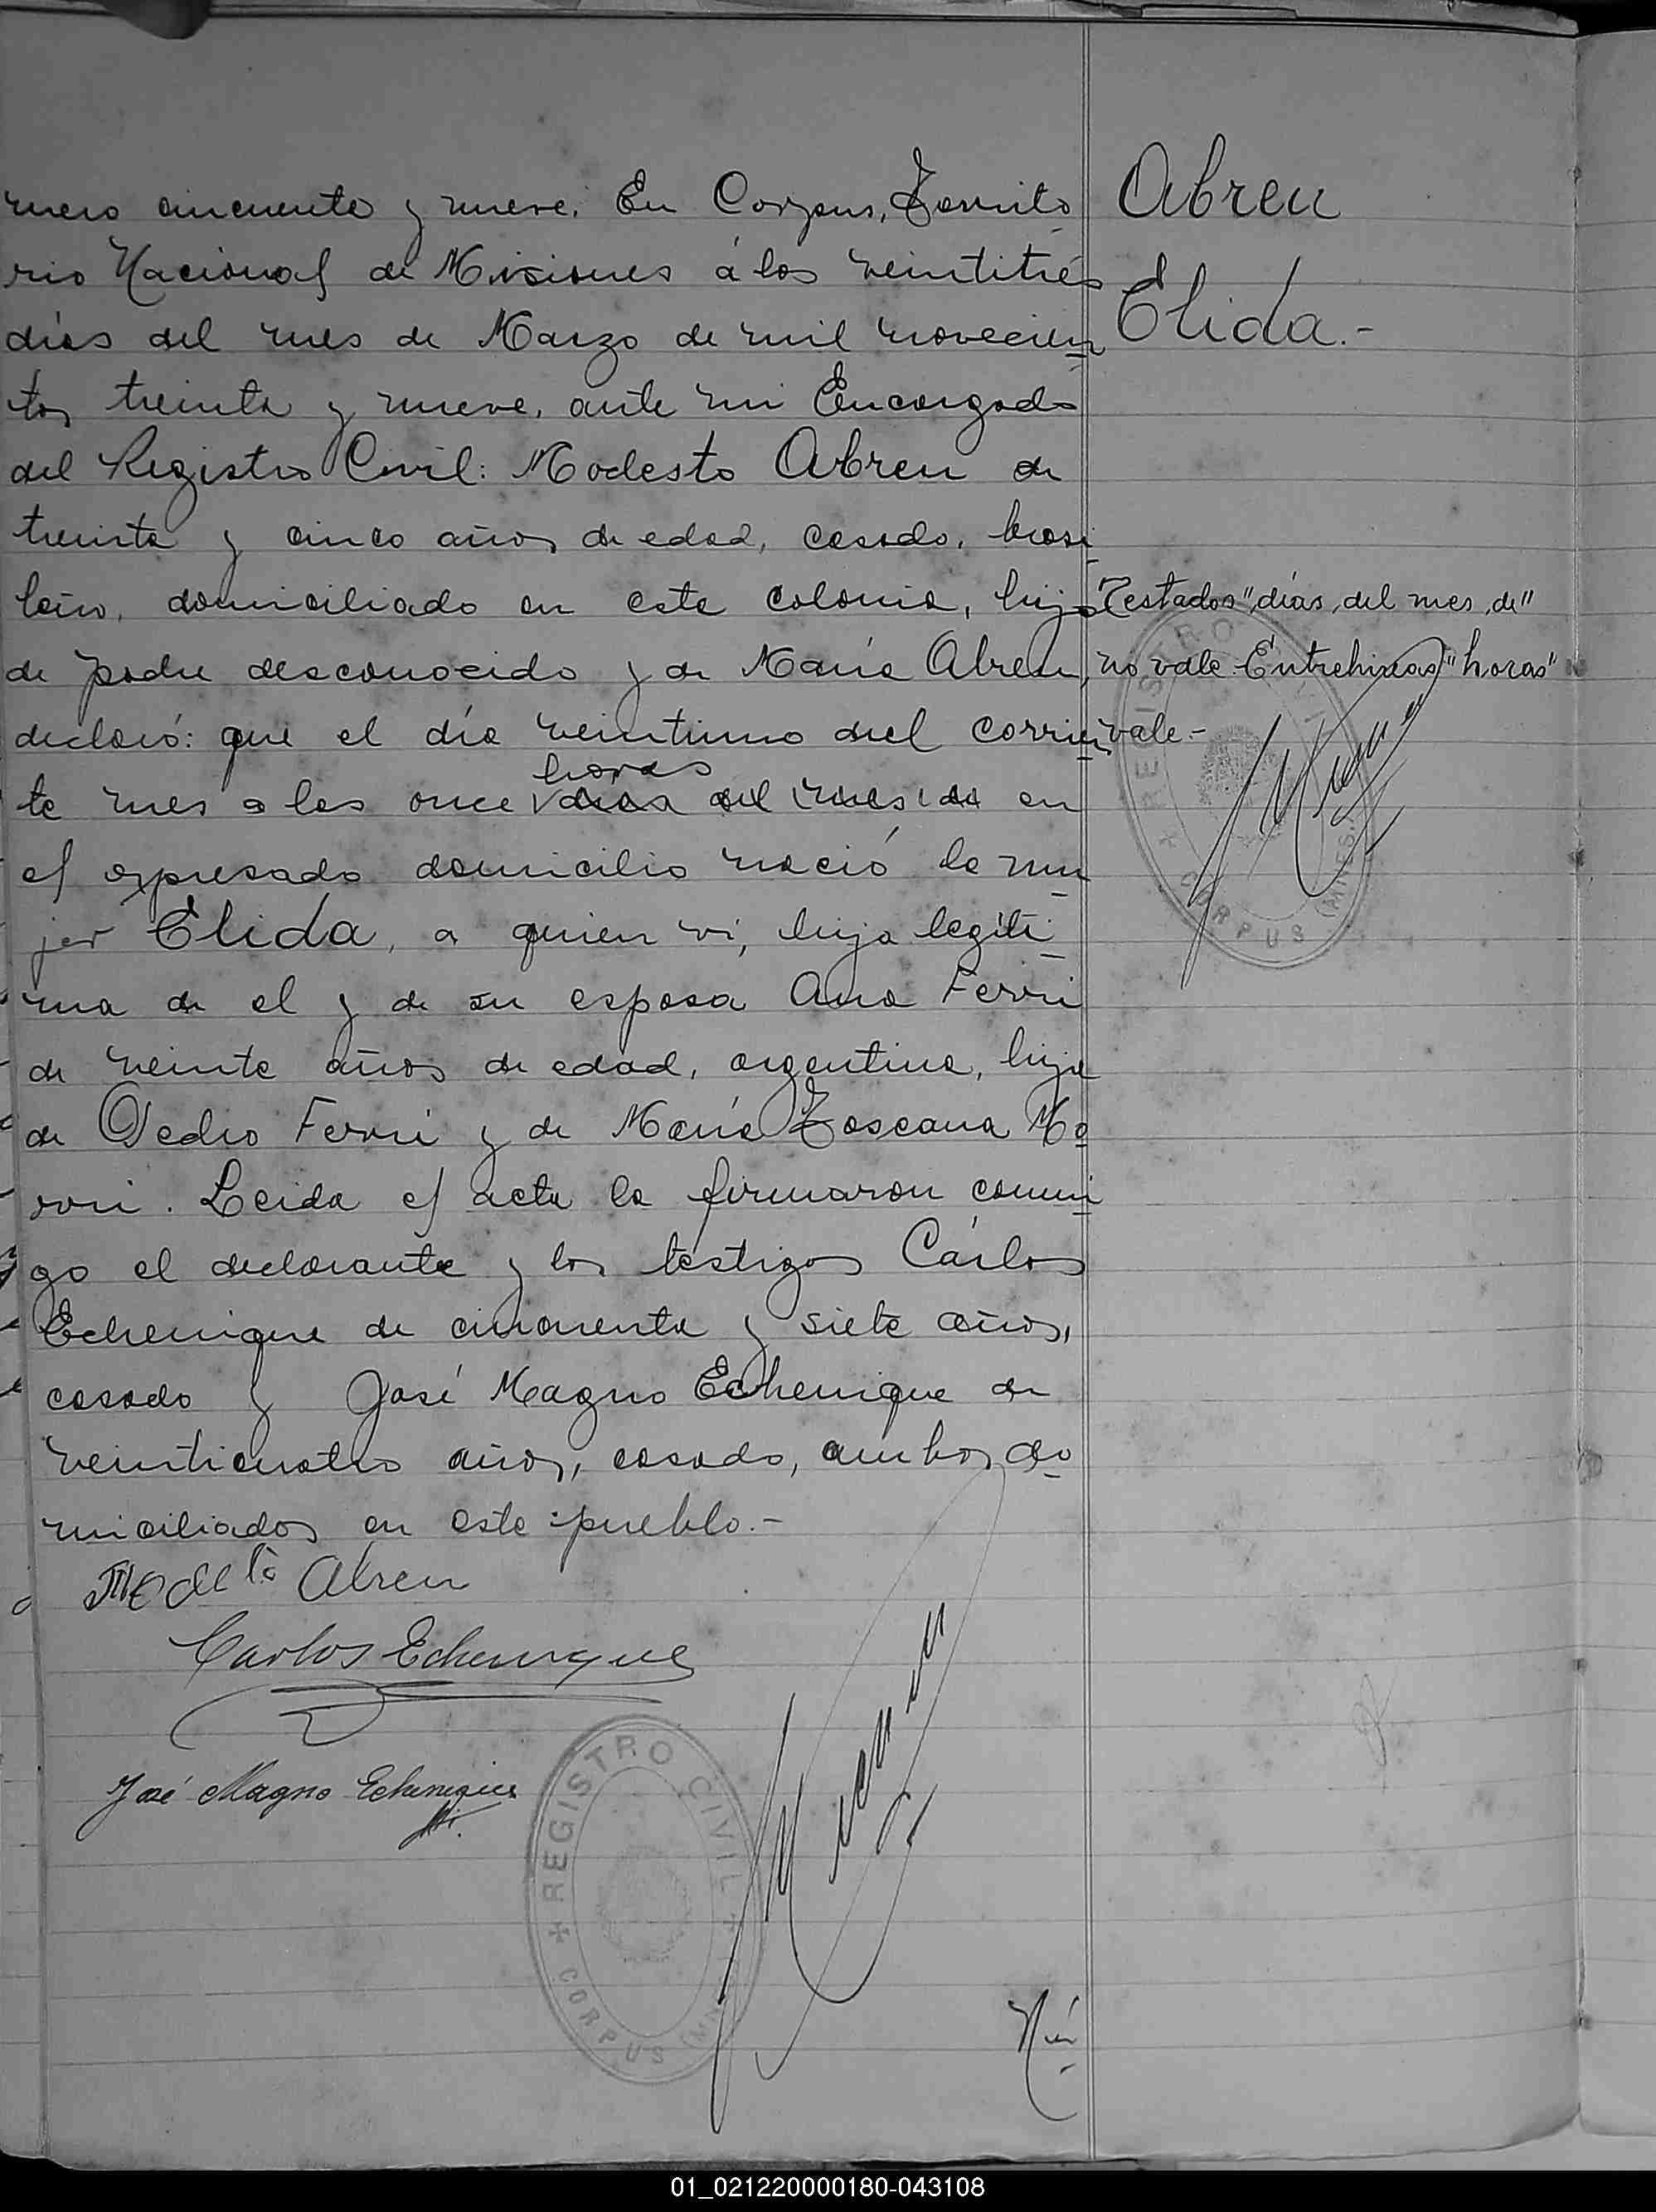 mero cincuenta y nueve. En Corpus, Territo
rio Nacional de Misiones á los veintitrés
días del mes de Marzo de mil novecien
tos treinta y nueve, ante mi Encargado
del Registro Civil: Modesto Abreu de
treinta y cinco años de edad, casado, brasi
leño, domiciliado en esta colonia, hijo
de padre desconocido y de María Abreu,
declaró: que el día veintiuno del corrien
te mes a las once horas días del mes de en
el expresado domicilio nació la mu
jer Elida, a quien vi, hija legíti
ma de el y de su esposa Ana Ferri
de veinte años de edad, argentina, hija
de Pedro Ferri y de María Toscana Mo
rri. Leida el acta la firmaron conmi
go el declarante y los testigos Cárlos
Echenique de cincuenta y siete años,
casado y José Magno Echenique de
veinticuatro años, casado, ambos do
miciliados en este pueblo.-
Modesto Abreu
Carlos Echenique
José Magno Echenique
REGISTRO CIVIL
CORPUS
Nú
Abreu
Elida.-
Testados "días, del mes, de"
no vale. Entrelineas "horas"
vale.-
REGISTRO CIVIL
CORPUS (MNES.)
01_021220000180-043108